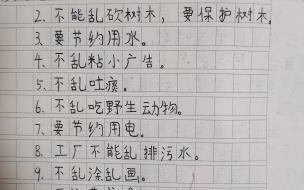 2、不能乱砍树木，要保护树木。
3、要节约用水。
4、不乱粘小广告。
5、不乱吐痰。
6、不乱吃野生动物。
7、要节约用电。
8、工厂不能乱排污水。
9、不乱涂乱画。